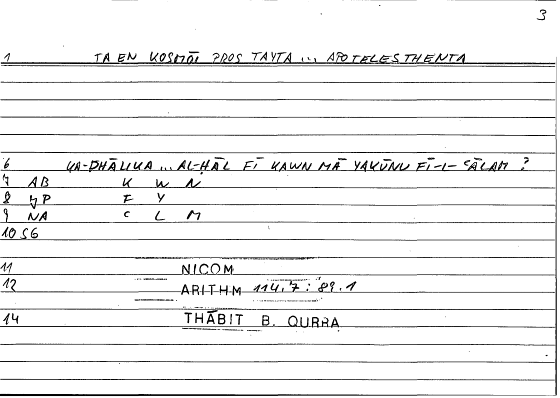 3
1 TA EN KOSMŌI PROS TAYTA ... APOTELESTHENTA
6 KA-DHĀLIKA ... AL-ḤĀL FĪ KAWN MĀ YAKŪNU FĪ-L-ʿĀLAM ?
7 AB K W N
8 yP F Y
9 NA ʿ L M
10 SG
11 NICOM
12 ARITHM 114.7 : 89.1
14 THĀBIT B. QURRA